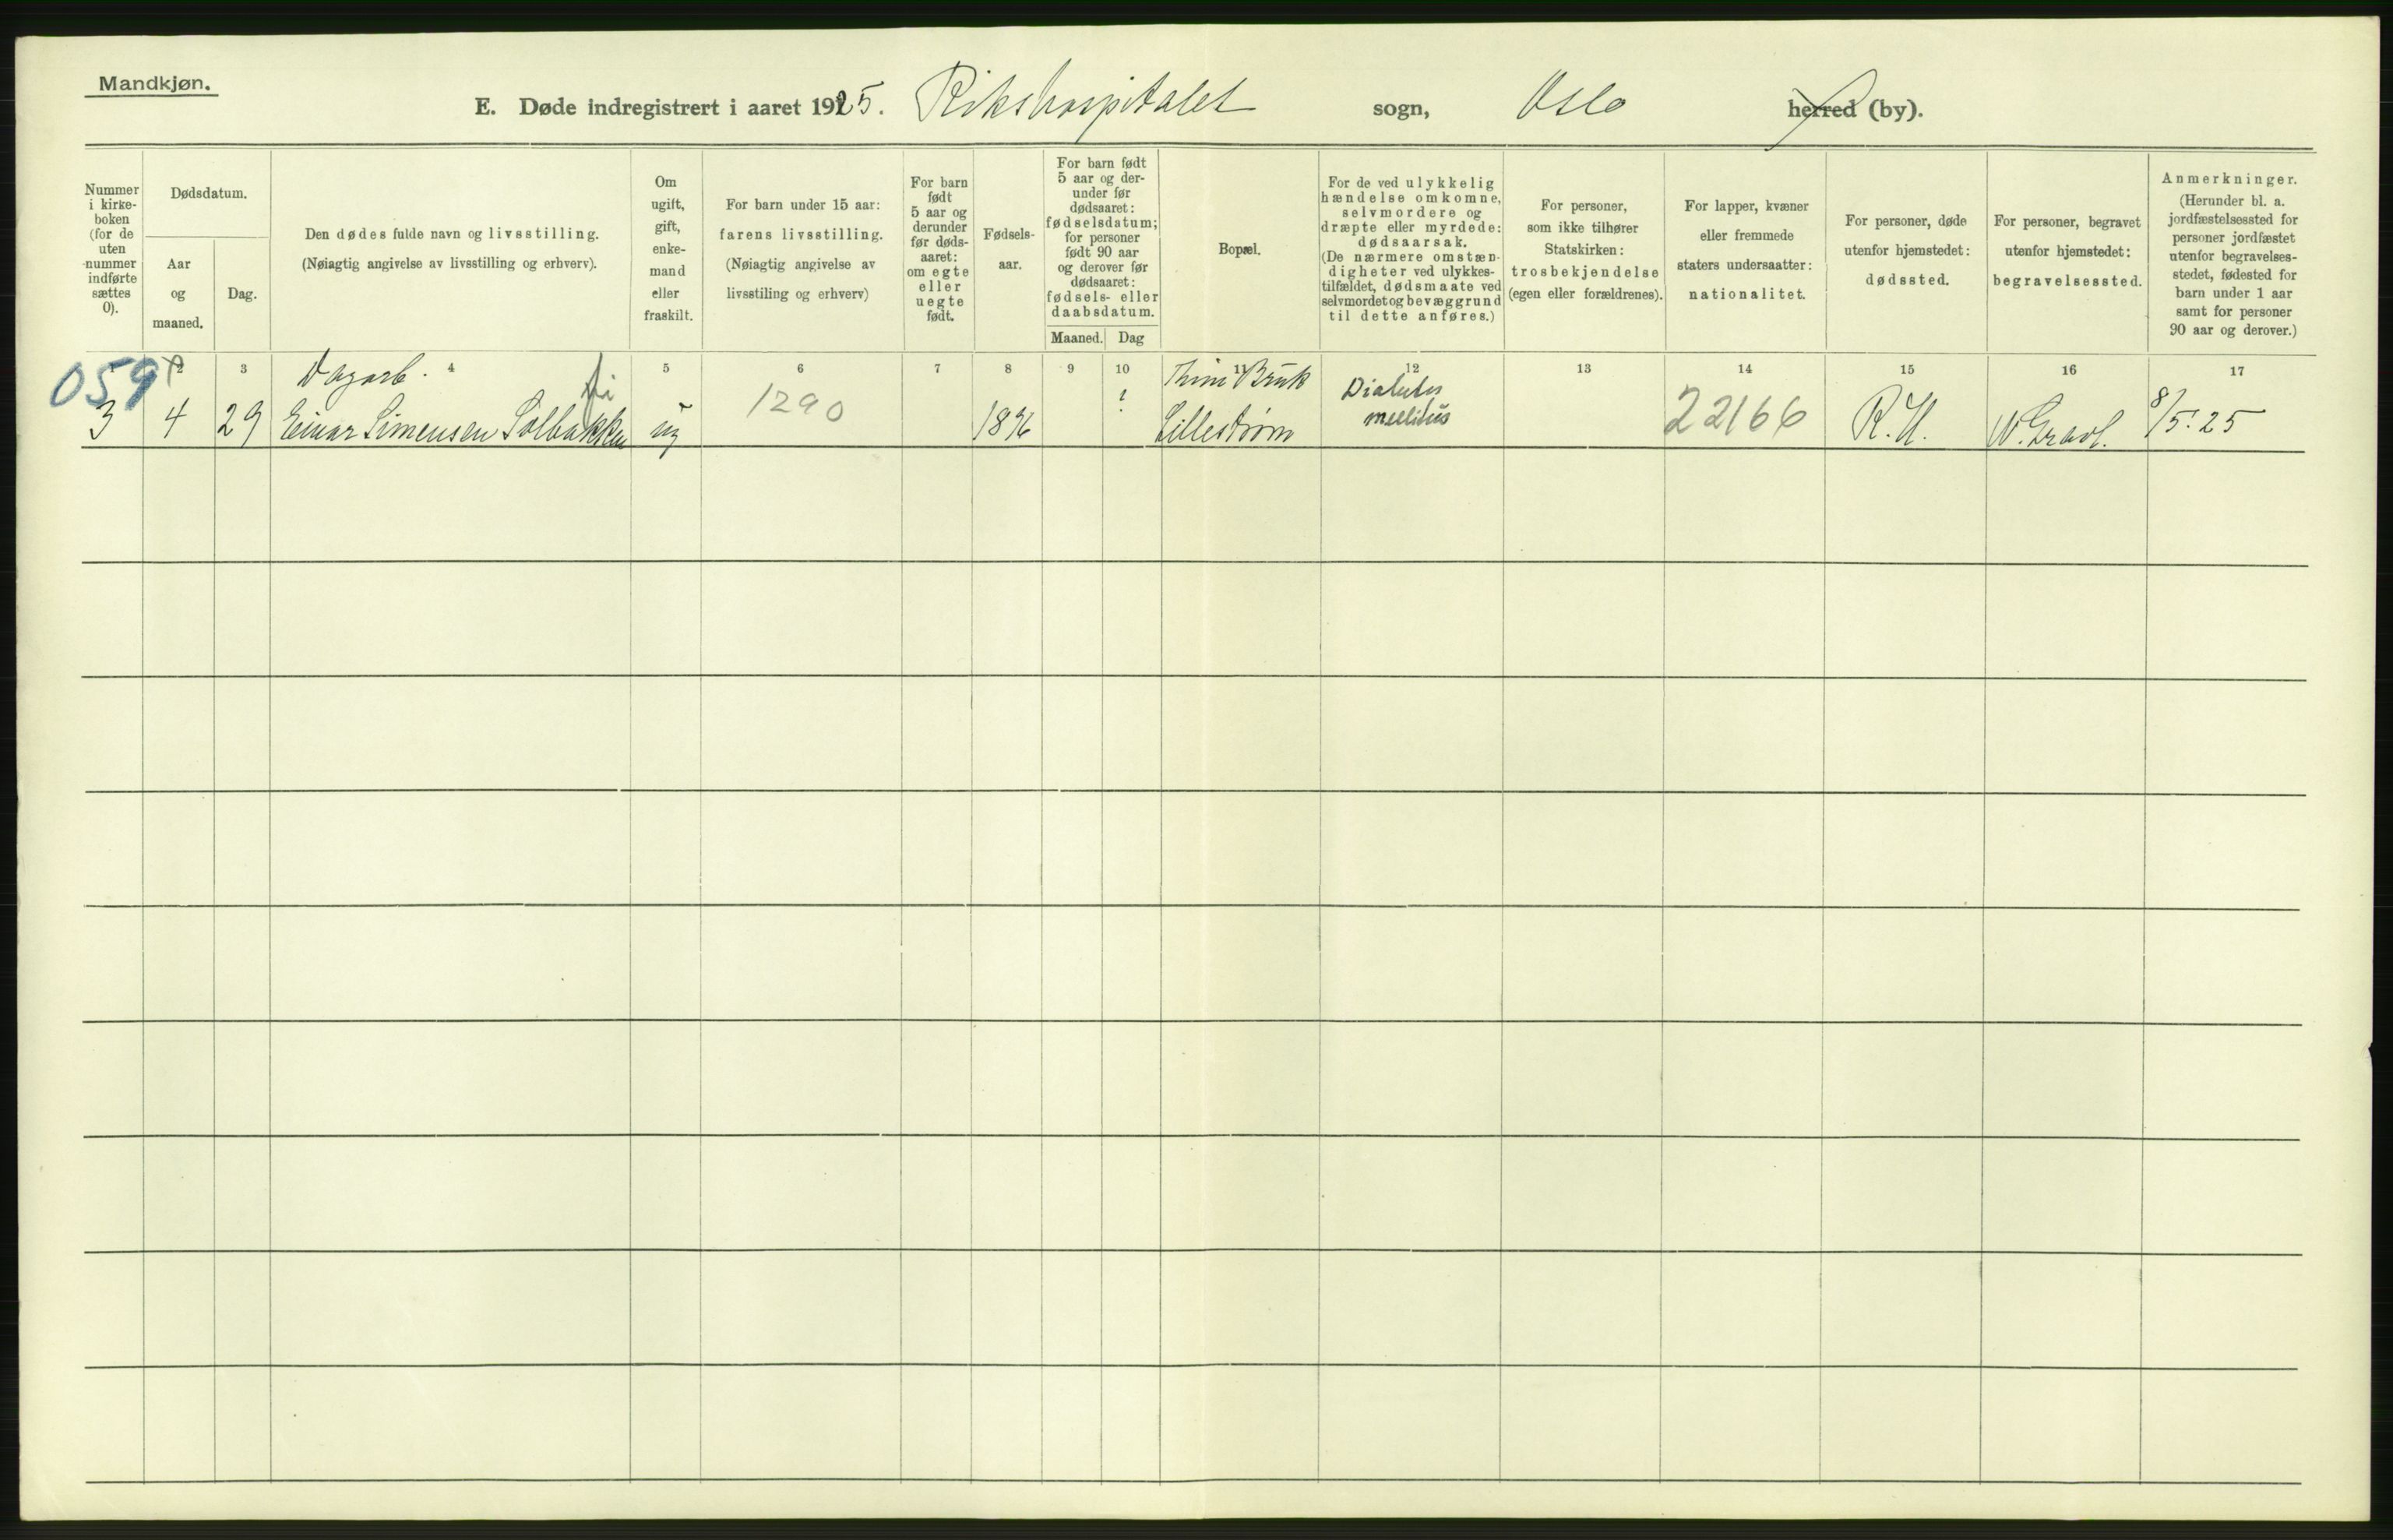 Mandkjøn.
E. Døde indregistrert i aaret 1925. Rikshospitalet sogn, Oslo herred (by).
Nummer
i kirke-
boken
(for de
uten
nummer
indførte
sættes
0).
Dødsdatum.
Aar
og
maaned.
Dag.
Den dødes fulde navn og livsstilling.
(Nøiagtig angivelse av livsstilling og erhverv).
Om
ugift,
gift,
enke-
mand
eller
fraskilt.
For barn under 15 aar:
farens livsstilling.
(Nøiagtig angivelse av
livsstiling og erhverv)
For barn
født
5 aar og
derunder
før døds-
aaret:
om egte
eller
uegte
født.
Fødsels-
aar.
For barn født
5 aar og der-
under før
dødsaaret:
fødselsdatum;
for personer
født 90 aar
og derover før
dødsaaret:
fødsels- eller
daabsdatum.
Maaned. Dag
Bopæl.
For de ved ulykkelig
hændelse omkomne,
selvmordere og
dræpte eller myrdede:
dødsaarsak.
(De nærmere omstæn-
digheter ved ulykkes-
tilfældet, dødsmaate ved
selvmordet og bevæggrund
til dette anføres.)
For personer,
som ikke tilhører
Statskirken:
trosbekjendelse
(egen eller forældrenes).
For lapper, kvæner
eller fremmede
staters undersaatter:
nationalitet.
For personer, døde
utenfor hjemstedet:
dødssted.
For personer, begravet
utenfor hjemstedet:
begravelsessted.
Anmerkninger.
(Herunder bl. a.
jordfæstelsessted for
personer jordfæstet
utenfor begravelses-
stedet, fødested for
barn under 1 aar
samt for personer
90 aar og derover.)
1 2 3 4 5 6 7 8 9 10 11 12 13 14 15 16 17
059
Dagarb. Bruk Diabetes
3 4 29 Einar Simensen Solbakken ug 1290 1896 ? Lillestrøm mellitus 22166 R.H. V. Gravl. 8/5. 25